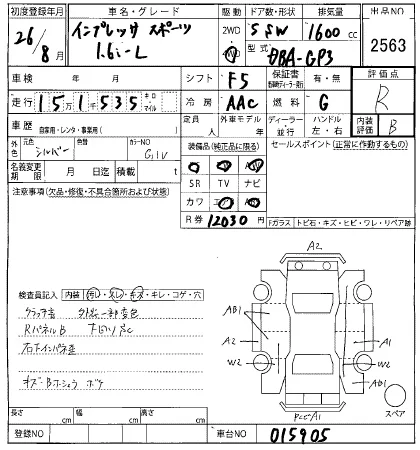 初度登録年月 車名・グレード 駆動 ドア数・形状 排気量 出品NO
26年 インプレッサ スポーツ 2WD 5 SW 1600cc 2563
8月 1.6i-L 4WD 型式 DBA-GP3
車検 年 月 シフト F5 保証書 有・無 評価点
走行 151535 キロ・マイル 冷房 AAC 燃料 G R
車歴 自家用・レンタ・事業用( ) 定員 人 外車モデル 年 ディーラー・並行 ハンドル 左・右 内装評価 B
外色 元色 シルバー 色替 カラーNO G1U 装備品(純正品に限る) セールスポイント(正常に作動するもの)
名義変更期限 月 日迄 積載 t
SR TV ナビ
注意事項(欠品・修復・不具合箇所および状態)
カワ エ
R券 12030円
Fガラス トビ石・キズ・ヒビ・ワレ・リペア跡
A2
検査員記入 内装 汚レ・スレ・キズ・キレ・コゲ・穴
AB1
クラッチ音 外装一部変色
RパネルB 下回りSC
A2 A1
右下インパネ歪
W2 W2
AB1
スペア
長さ cm 幅 cm 高さ cm
A1
登録NO 車台NO 015905